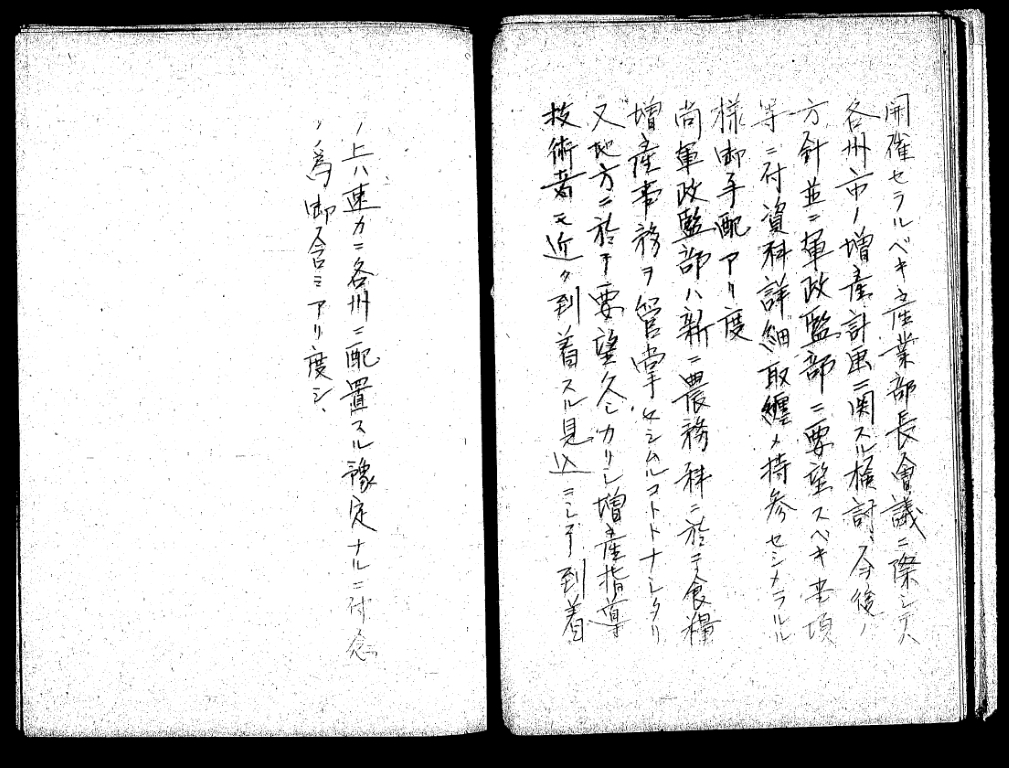 開催セラルベキ産業部長會議ニ際シテハ
各州市ノ増産計画ニ関スル検討、今後ノ
方針並ニ軍政監部ニ要望スベキ事項
等ニ付資料詳細取纏メ持参セシメラルル
様御手配アリ度
尚軍政監部ハ新ニ農務科ニ於テ食糧
増産事務ヲ管掌セシムルコトトナレリ
又地方ニ於テ要望久シカリシ増産指導
技術者モ近ク到着スル見込ニシテ到着
ノ上ハ速カニ各州ニ配置スル豫定ナルニ付念
ノ為御含ミアリ度シ、